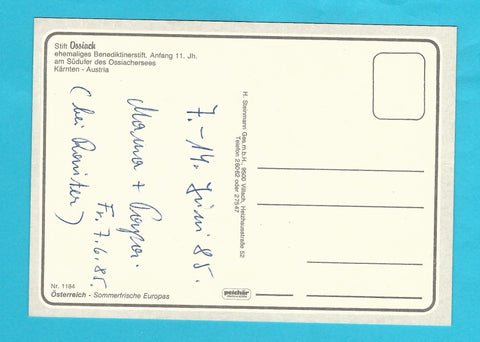 Stift Ossiach
ehemaliges Benediktinerstift, Anfang 11. Jh.
am Südufer des Ossiachersees
Kärnten - Austria
7.-14. Juni 85.
Mama + Papa.
Fr. 7.6.85.
(bei Roniter)
H. Steinmann Ges.m.b.H., 9500 Villach, Heizhausstraße 52
Telefon 26062 oder 27547
Nr. 1184
Österreich - Sommerfrische Europas
peichär